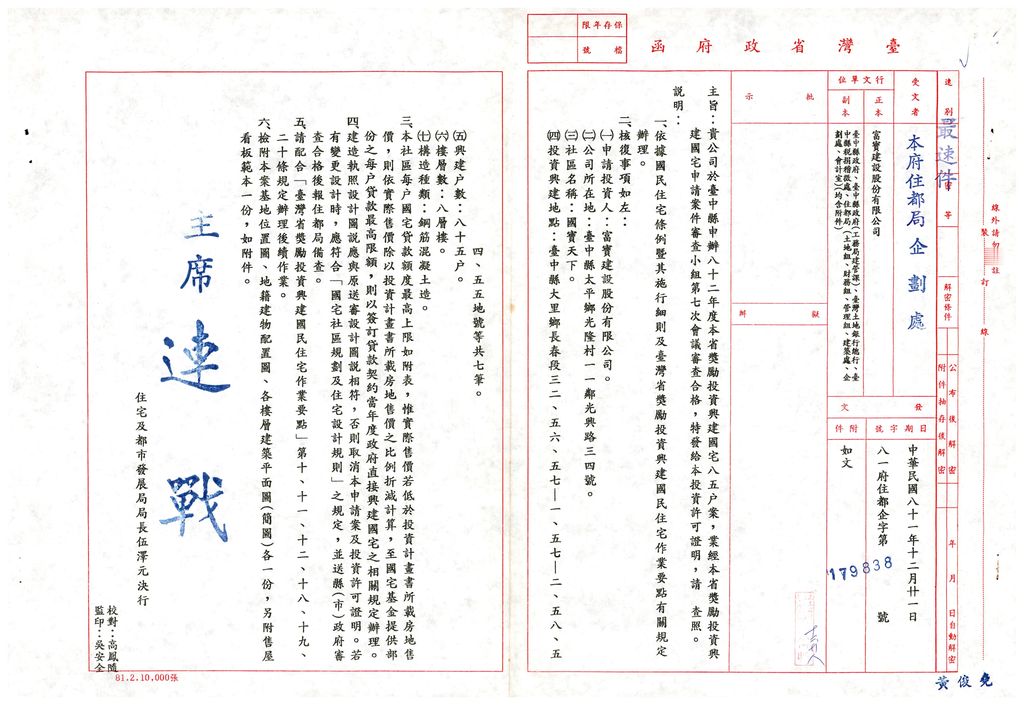 臺灣省政府函
保存年限
檔號
速別
最速件
密等
解密條件
公布後解密
附件抽存後解密
年月日自動解密
受文者
本府住都局企劃處
行文單位
正本
富寶建設股份有限公司
副本
臺中縣政府、臺中縣政府（工務局建管課）、臺灣土地銀行總行、臺
中縣稅捐稽徵處、住都局（土地組、財務組、管理組、建築處、企
劃處、會計室）（均含附件）
發文
日期
中華民國八十一年十二月廿一日
字號
八一府住都企字第179838號
附件
如文
批示
擬辦
主旨：貴公司於臺中縣申辦八十二年度本省獎勵投資興建國宅八五戶案，業經本省獎勵投資興
建國宅申請案件審查小組第七次會議審查合格，特發給本投資許可證明，請　查照。
說明：
一、依據國民住宅條例暨其施行細則及臺灣省獎勵投資興建國民住宅作業要點有關規定
辦理。
二、核復事項如左：
(一)申請投資人：富寶建設股份有限公司。
(二)公司所在地：臺中縣太平鄉光隆村一一鄰光興路三四號。
(三)社區名稱：國寶天下。
(四)投資興建地點：臺中縣大里鄉長春段三二、五六、五七—一、五七—二、五八、五
四、五五地號等共七筆。
(五)興建戶數：八十五戶。
(六)樓層數：八層樓。
(七)構造種類：鋼筋混凝土造。
三、本社區每戶國宅貸款額度最高上限如附表，惟實際售價若低於投資計畫書所載房地售
價，則依實際售價除以投資計畫書所載房地售價之比例折減計算，至國宅基金提供部
份之每戶貸款最高限額，則以簽訂貸款契約當年度政府直接興建國宅之相關規定辦理。
四、建造執照設計圖說應與原送審設計圖說相符，否則取消本申請案及投資許可證明。若
有變更設計時，應符合「國宅社區規劃及住宅設計規則」之規定，並送縣（市）政府審
查合格後報住都局備查。
五、請配合「臺灣省獎勵投資興建國民住宅作業要點」第十、十一、十二、十八、十九、
二十條規定辦理後續作業。
六、檢附本案基地位置圖、地籍建物配置圖、各樓層建築平面圖（簡圖）各一份，另附售屋
看板範本一份，如附件。
主席連戰
住宅及都市發展局局長伍澤元決行
校對：高鳳隨
監印：吳安全
81.2.10,000張
裝訂線
線外請勿
註
黃俊堯